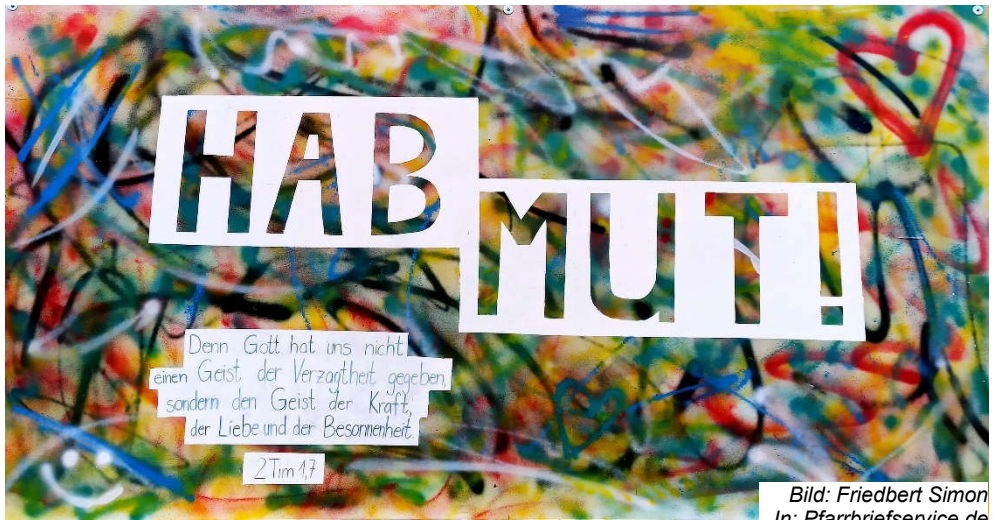 HAB
MUT!
Denn Gott hat uns nicht
einen Geist der Verzagtheit gegeben,
sondern den Geist der Kraft,
der Liebe und der Besonnenheit.
2 Tim 1,7
Bild: Friedbert Simon
In: Pfarrbriefservice.de